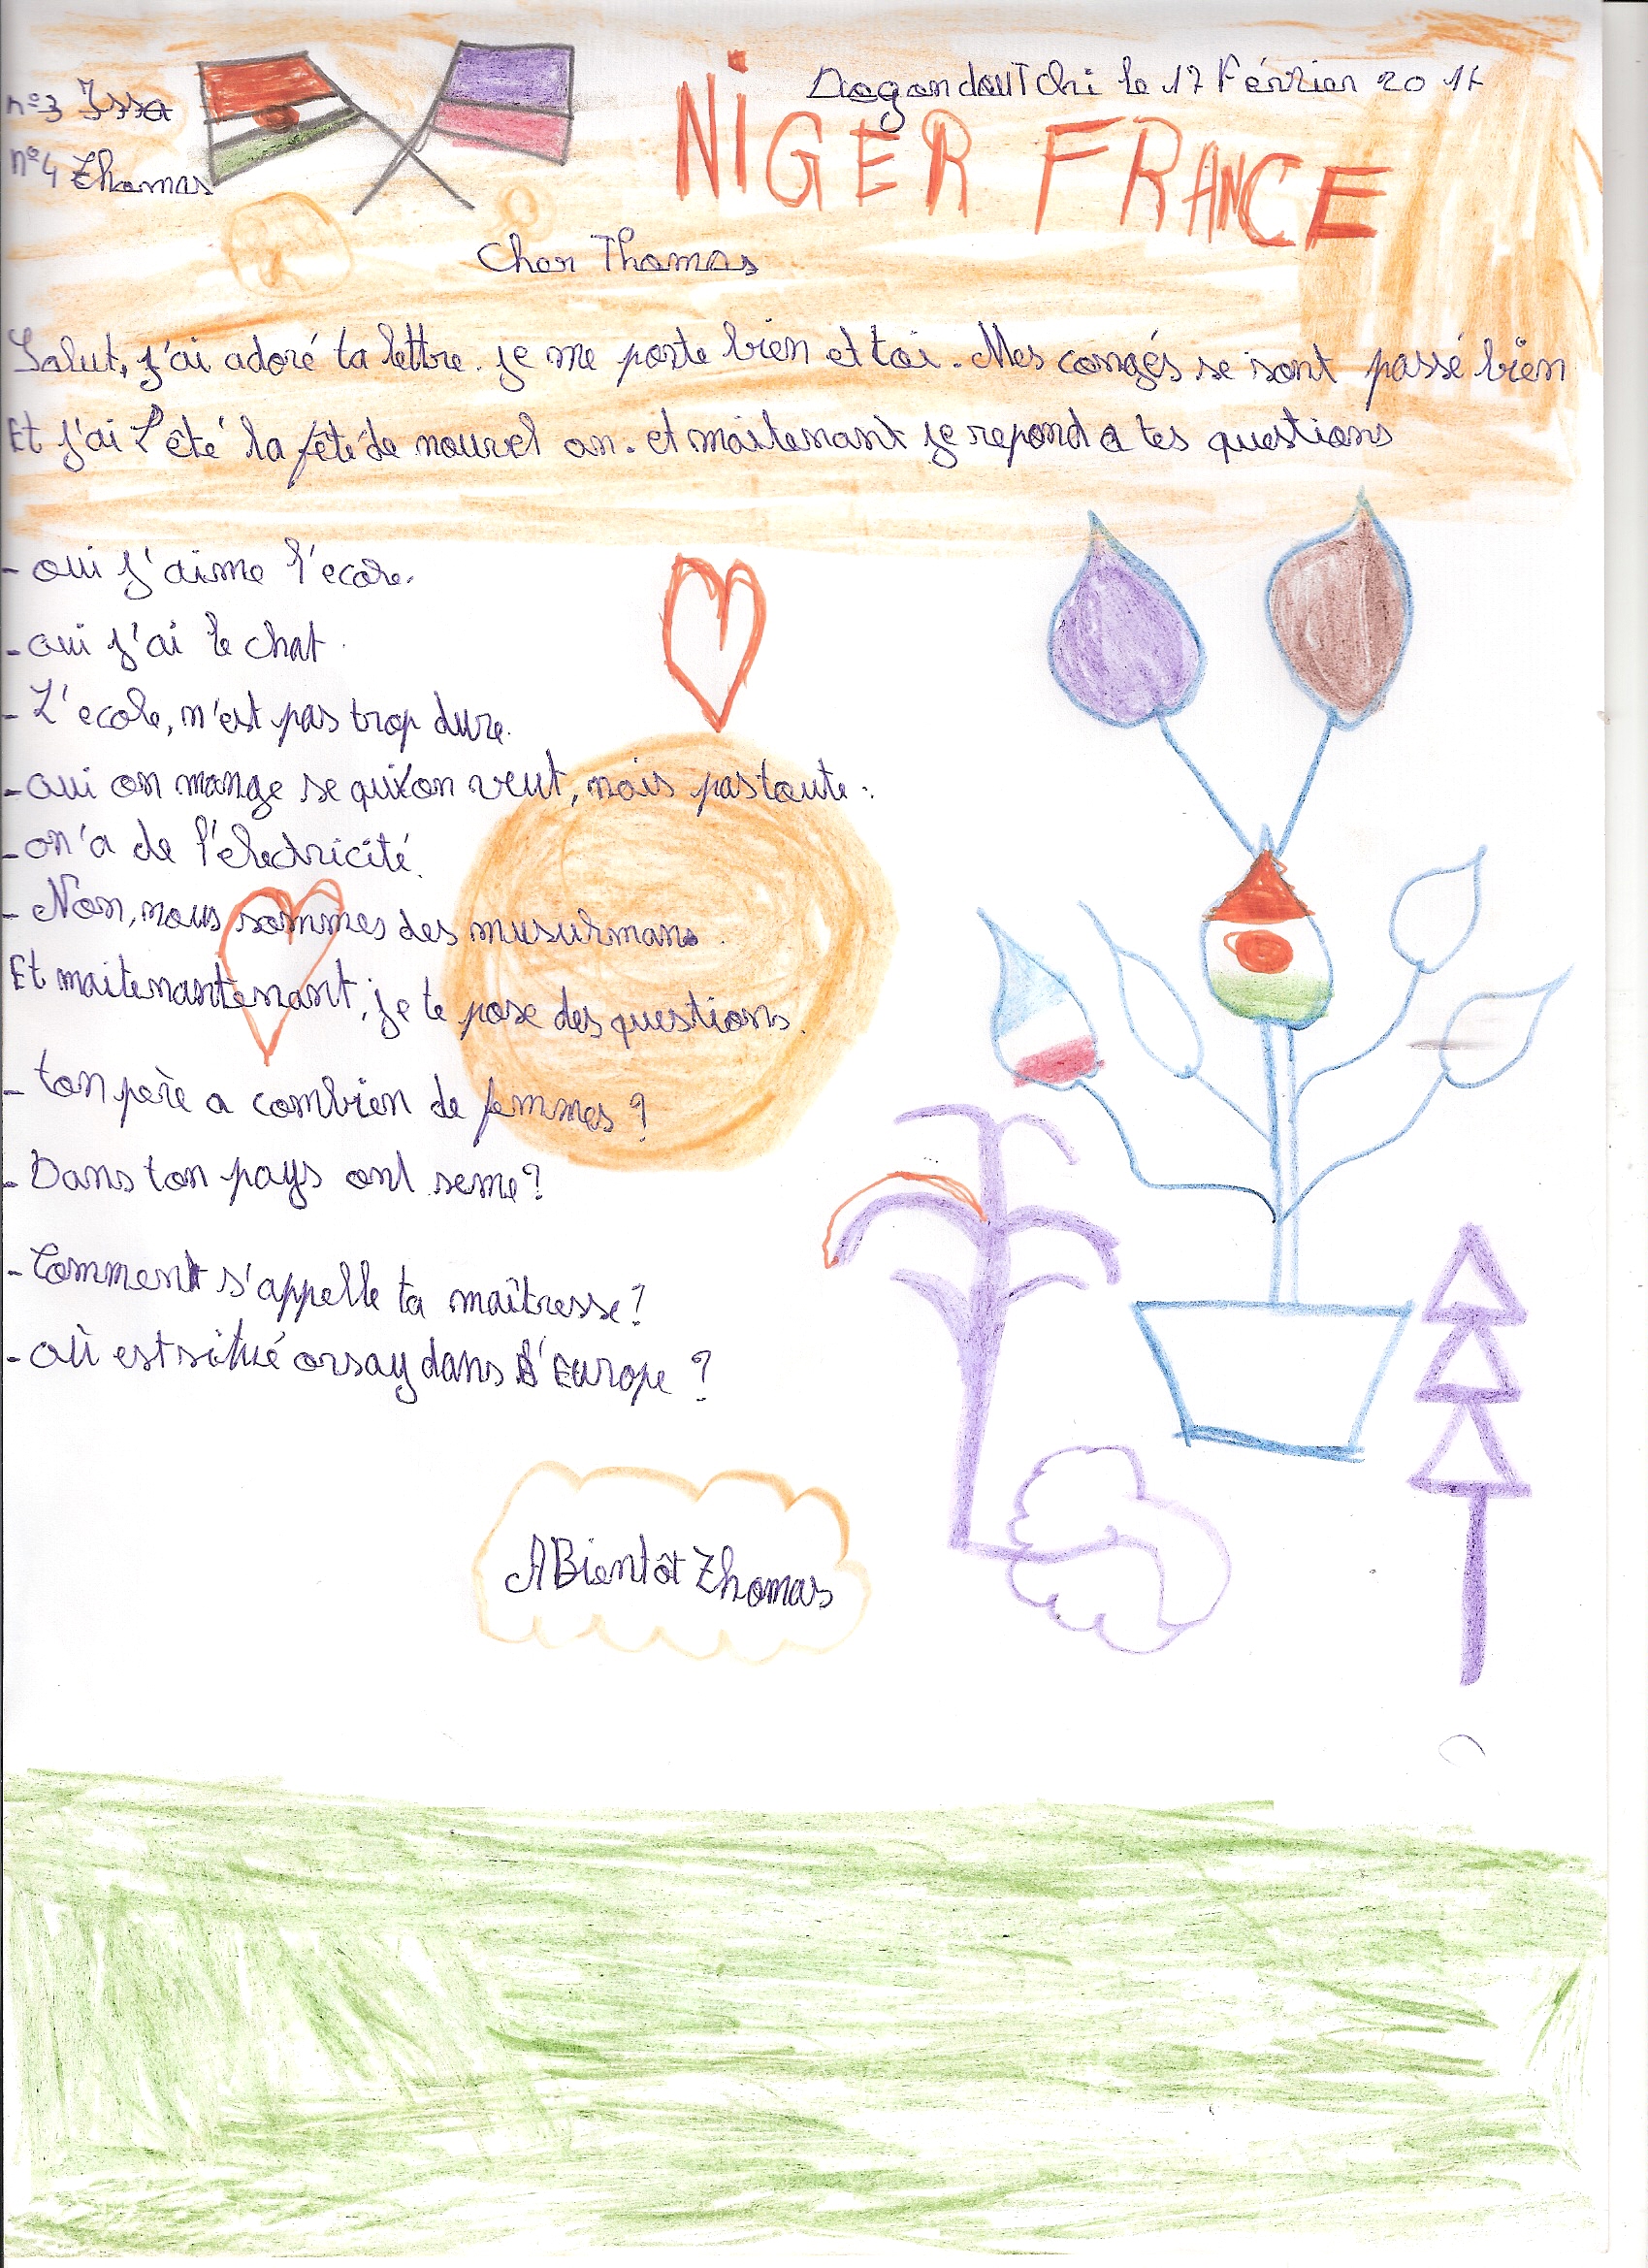 n°3 Issa
n°4 Thomas
Dogondoutchi le 17 Février 2017
NiGER FRANCE
Cher Thomas
Salut, j'ai adoré ta lettre. je me porte bien et toi. Mes congés se sont passé bien
Et j'ai fêté la fête de nouvel an. et maitenant je repond a tes questions
- oui j'aime l'ecole.
- oui j'ai le chat.
- L'ecole, n'est pas trop dure.
- oui on mange se qu'on veut, mais pas toute.
- on'a de l'électricité.
- Non, nous sommes des musurmans.
Et maitenantenant, je te pose des questions.
- ton père a combien de femmes ?
- Dans ton pays ont seme ?
- Comment s'appelle ta maîtresse ?
- où est situé orsay dans l'Europe ?
A Bientôt Thomas